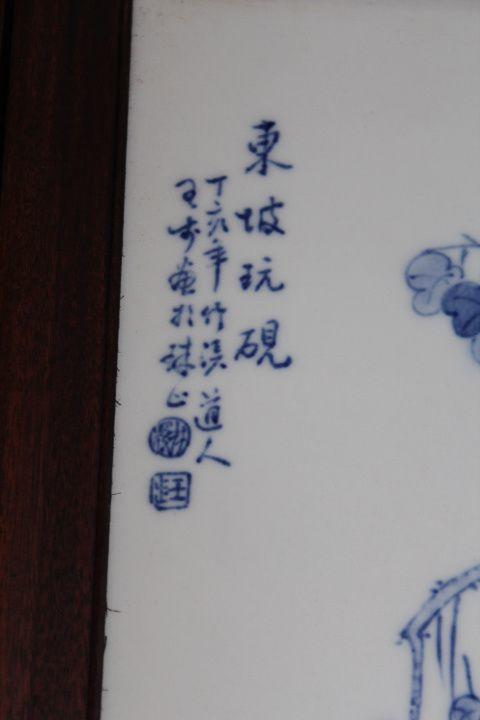 東坡玩硯
丁亥年竹溪道人
王步畫於珠山